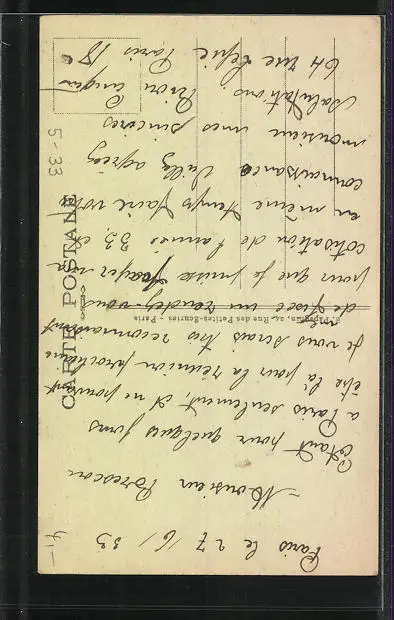 Paris le 27/6/33
Monsieur Brescon
Etant pour quelques jours
à Paris seulement, et ne pouvant
être là pour la réunion prochaine
Je vous serais très reconnaissant
de fixer un rendez-vous
pour que je puisse payer ma
cotisation de l'année 33, et
en même temps faire votre
connaissance Veuillez agréer
monsieur mes sincères
salutations
64 rue Lepic Paris 18e
CARTE POSTALE
Rue des Petites-Ecuries - Paris
5-33
4,-